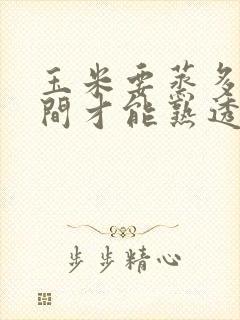 玉米要蒸多
間才能熟透
步步精心